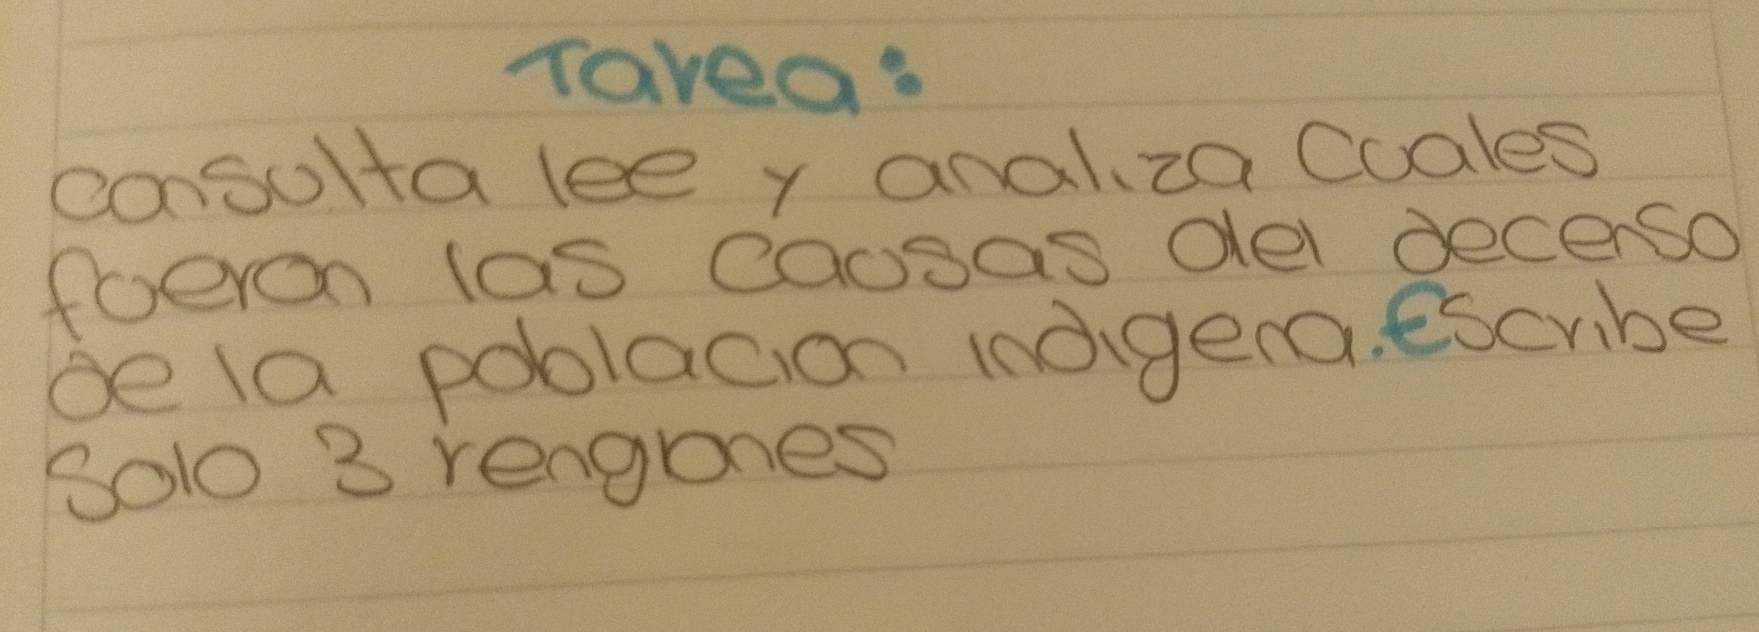 Tarea:
consulta lee y analiza Cuales
fueron las causas del decenso
de la poblacion indigena. Escribe
Solo 3 renglones